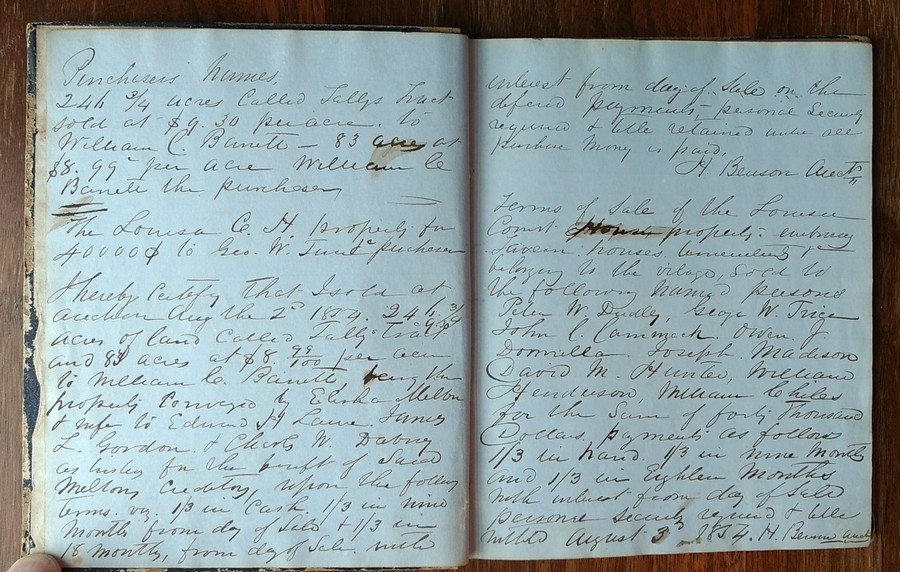 Purchasers Names,
246 3/4 acres Called Tallys Tract
sold at $9.30 per acre. to
William C. Barrett – 83 acres at
$8.99c per acre William C
Barrett the purchaser
The Louisa C. H. property for
40000$ to Geo. W. purchaser
I hereby Certify that I sold at
auction Aug the 2d 1854. 246. 3/4
acres of land Called Tallys Tract 9.30
and 83 acres at $8 99/100 per acre
to William C. Barrett, being the
property Conveyed by Elisha Melton
& wife to Edmund H James
L. Gordon & Charles W. Dabney
as for the benefit of Said
Meltons Creditors, upon the follow
terms. viz, 1/3 in Cash, 1/3 in nine
Months from day of Sale & 1/3 in
18 months, from day of Sale. with
interest from day of Sale on the
defered payments, personel Security
required & title retained until all
purchase Money is paid,
H. Benson Auctr
Terms of Sale of the Louisa
Court House property, embracing
Tavern houses tenements &c
belonging to the village, Sold to
the following named persons
Peter W. Dudley, George W. Trice
John C. Cammack. Owen. J
Joseph. Madison
David M. Hunter, William
Henderson, William Chiles
for the Sum of forty thousand
Dollars, payments as follow
1/3 in hand. 1/3 in nine Months
and 1/3 in Eighteen Months
with interest from day of Sale
personel security required & title
August 3d 1854. H. Benson auct